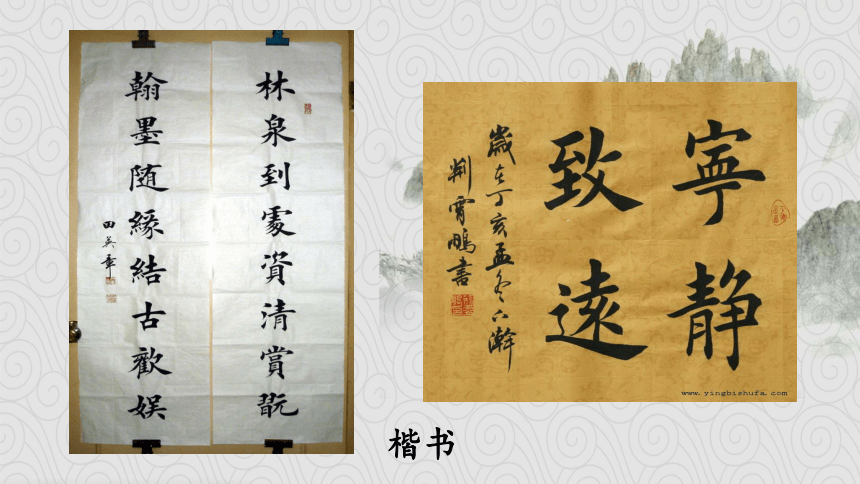 林泉到處資清賞翫
翰墨随緣結古歡娱
田英章
寧静
致遠
歲在丁亥孟冬下澣
荆霄鵬書
www.yingbishufa.com
楷书